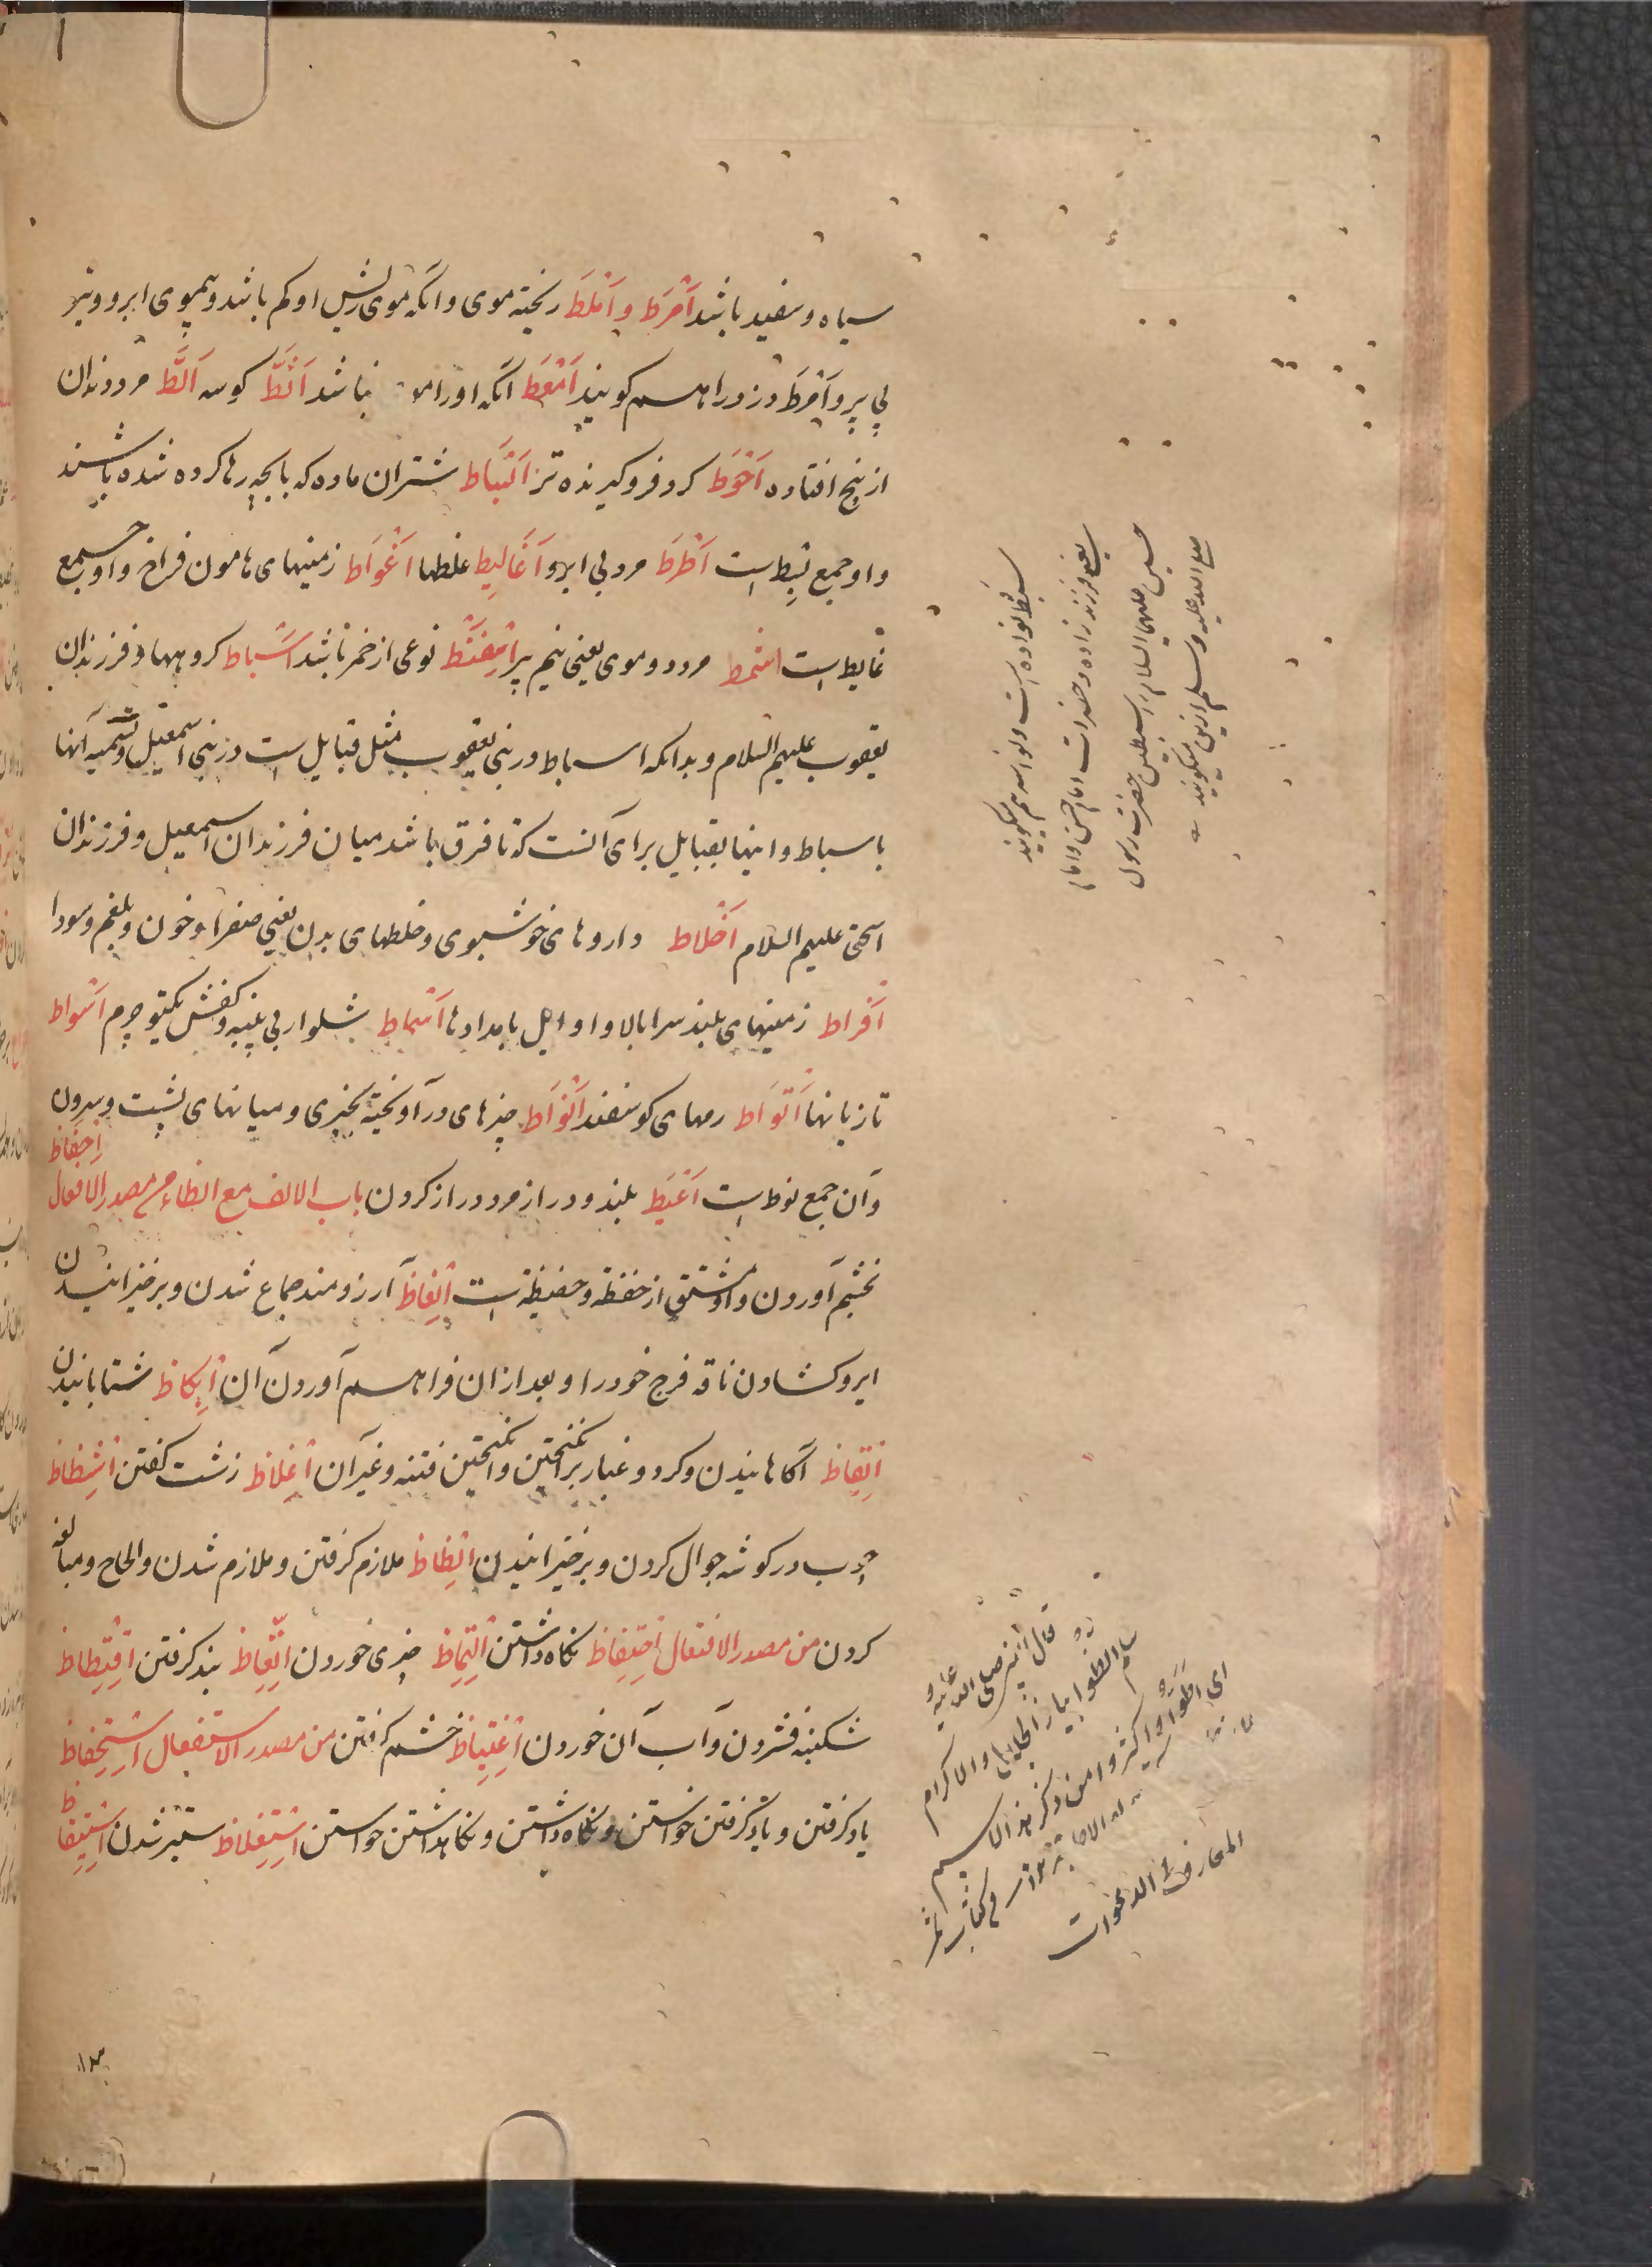 سیاه و سفید باشد اَمْرَط و اَمْلَط ریخته موی و آنکه موی ریش او کم باشد و بیموی ابرو و تیر
بی پر و اَمْرَط دزد را هم گویند اَمْعَط آنکه او را نباشد اَثَطّ کوسه اَلَطّ مرد دندان
از بیخ افتاده اَحْوَط گرد فروگیرنده تر اَبْسَاط شتران ماده که با بچه رها کرده شده باشند
و او جمع بسِط است اَطْرَط مرد بی ابرو اَغَالِیط غلطها اَغْوَاط زمینهای هامون فراخ و او جمع
غایط است اشمط مرد دو موی یعنی نیم پیر اِسْفِنْط نوعی از خمر باشد اَسْبَاط گروهها و فرزندان
یعقوب علیهم السلام و بدانکه اسباط در بنی یعقوب مثل قبایل است در بنی اسمعیل و تسمیه آنها
باسباط و اینها بقبایل برای آنست که تا فرق باشد میان فرزندان اسمعیل و فرزندان
اسحق علیهم السلام اَخْلاط داروهای خوشبوی و خلطهای بدن یعنی صفرا و خون و بلغم و سودا
اَفْراط زمینهای بلند سرابالا و اوایل بامدادها اَسْمَاط شلوار بی پنبه و کفش یکتو چرم اَسْواط
تازیانها اَقْوَاط رمهای گوسفند اَنْوَاط چیزهای درآویخته بچیزی و میانهای پشت و بیرون
و آن جمع نوط است اَعْیَط بلند و دراز مرد دراز گردن باب الالف مع الظاء من مصدر الافعال اِحْفَاظ
بخشم آوردن و او مشتق از حفظة و حفیظة است اِنْعَاظ آرزومند جماع شدن و برخیزانیدن
ایر و کشادن ناقه فرج خود را و بعد از ان فراهم آوردن آن اِنْکَاظ شتابانیدن
اِیْقَاظ آگاهانیدن و گرد و غبار برانگیختن و انگیختن فتنه و غیر آن اِغْلَاظ زشت گفتن اِشْظَاظ
چوب در گوشه جوال کردن و برخیزانیدن اِلْظَاظ ملازم گرفتن و ملازم شدن و الحاح و مبالغه
کردن من مصدر الافتعال اِحْتِفَاظ نگاه داشتن اِلْتِمَاظ چیزی خوردن اِتِّعَاظ پند گرفتن اِفْتِظَاظ
شکنبه فشردن و آب آن خوردن اِغْتِیَاظ خشم گرفتن من مصدر الاستفعال اِسْتِحْفَاظ
یاد گرفتن و یاد گرفتن خواستن و نگاه داشتن و نگاهداشتن خواستن اِسْتِغْلَاظ ستبر شدن اِسْتِیقَاظ
سبط نواده است و نواسه هم میگویند
یعنی فرزند زاده و حضرات امام حسن و امام
حسین علیهما السلام را سبطین حضرت رسول
صلی الله علیه و سلم ازین میگویند
قال النبی صلی الله علیه و
سلم الظوا بیا ذا الجلال و الاکرام
ای الظوا و اکثروا من ذکر هذا الاسم
المعارف الدعوات